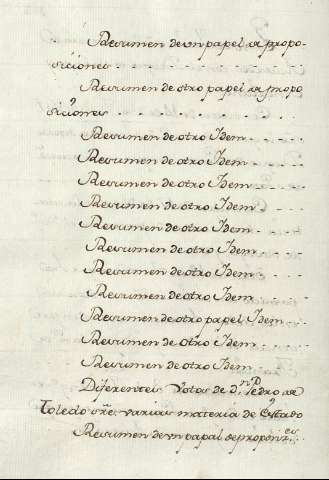 Resumen de vn papel de propo-
siciones . . . . . . . . . .
Resumen de otro papel de propo
siciones . . . . . . . . . .
Resumen de otro Idem . . . .
Resumen de otro Idem . . . .
Resumen de otro Idem . . . .
Resumen de otro Idem . . . .
Resumen de otro Idem . . . .
Resumen de otro Idem . . . .
Resumen de otro Idem . . . .
Resumen de otro Idem
Resumen de otro papel Idem . .
Resumen de otro Idem . . . .
Resumen de otro Idem . . .
Diferentes Votos de Dn. Pedro de
Toledo sre. varias materia de Estado
Resumen de vn papal de proponzes